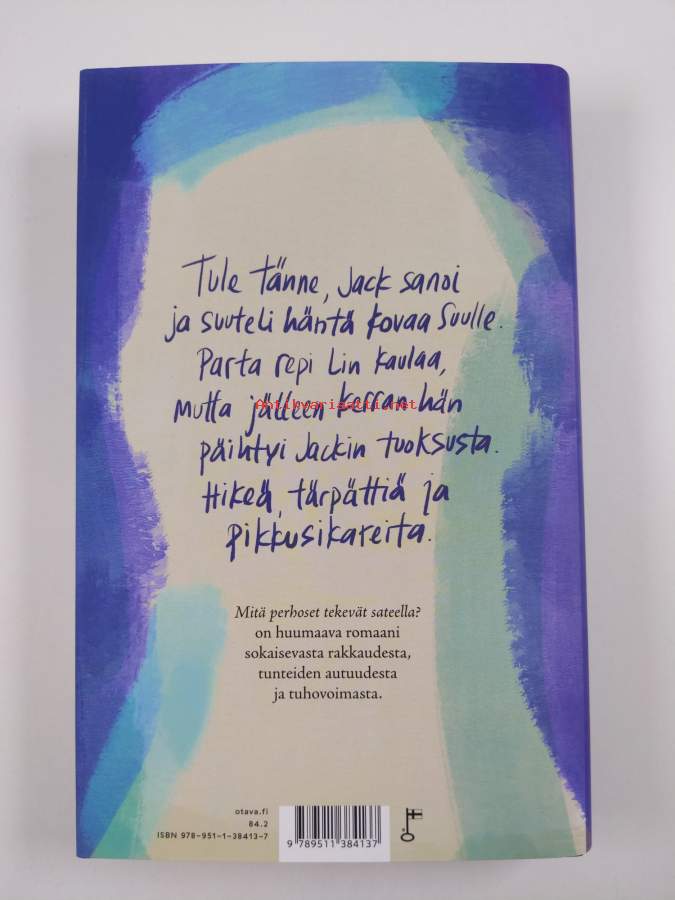 Tule tänne, Jack sanoi
ja suuteli häntä kovaa suulle.
Parta repi Lin kaulaa,
mutta jälleen kerran hän
Antikvariaatti.net
päihtyi Jackin tuoksusta.
Hikeä, tärpättiä ja
pikkusikareita.
Mitä perhoset tekevät sateella?
on huumaava romaani
sokaisevasta rakkaudesta,
tunteiden autuudesta
ja tuhovoimasta.
otava.fi
84.2
ISBN 978-951-1-38413-7
9 789511 384137